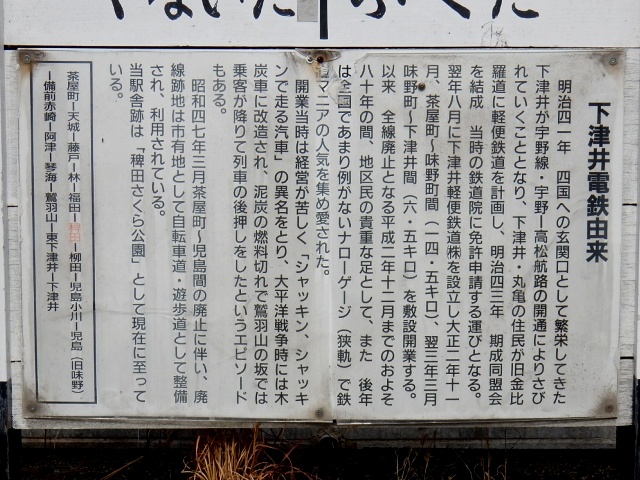 下津井電鉄由来
明治四一年 四国への玄関口として繁栄してきた
下津井が宇野線・宇野ー高松航路の開通によりさび
れていくこととなり、下津井・丸亀の住民が旧金比
羅道に軽便鉄道を計画し、明治四三年 期成同盟会
を結成 当時の鉄道院に免許申請する運びとなる。
翌年八月に下津井軽便鉄道㈱を設立し大正二年十一
月、茶屋町〜味野町間(一四・五キロ)、翌三年三月
味野町〜下津井間(六・五キロ)を敷設開業する。
以来 全線廃止となる平成二年十二月までのおよそ
八十年の間、地区民の貴重な足として、また 後年
は全国であまり例がないナローゲージ(狭軌)で鉄
マニアの人気を集め愛された。
開業当時は経営が苦しく「シャッキン、シャッキ
ンで走る汽車」の異名をとり、大平洋戦争時には木
炭車に改造され、泥炭の燃料切れで鷲羽山の坂では
乗客が降りて列車の後押しをしたというエピソード
もある。
昭和四七年三月茶屋町〜児島間の廃止に伴い、廃
線跡地は市有地として自転車道・遊歩道として整備
され、利用されている。
当駅舎跡は「稗田さくら公園」として現在に至って
いる。
茶屋町ー天城ー藤戸ー林ー福田ー稗田ー柳田ー児島小川ー児島(旧味野)
ー備前赤崎ー阿津ー琴海ー鷲羽山ー東下津井ー下津井